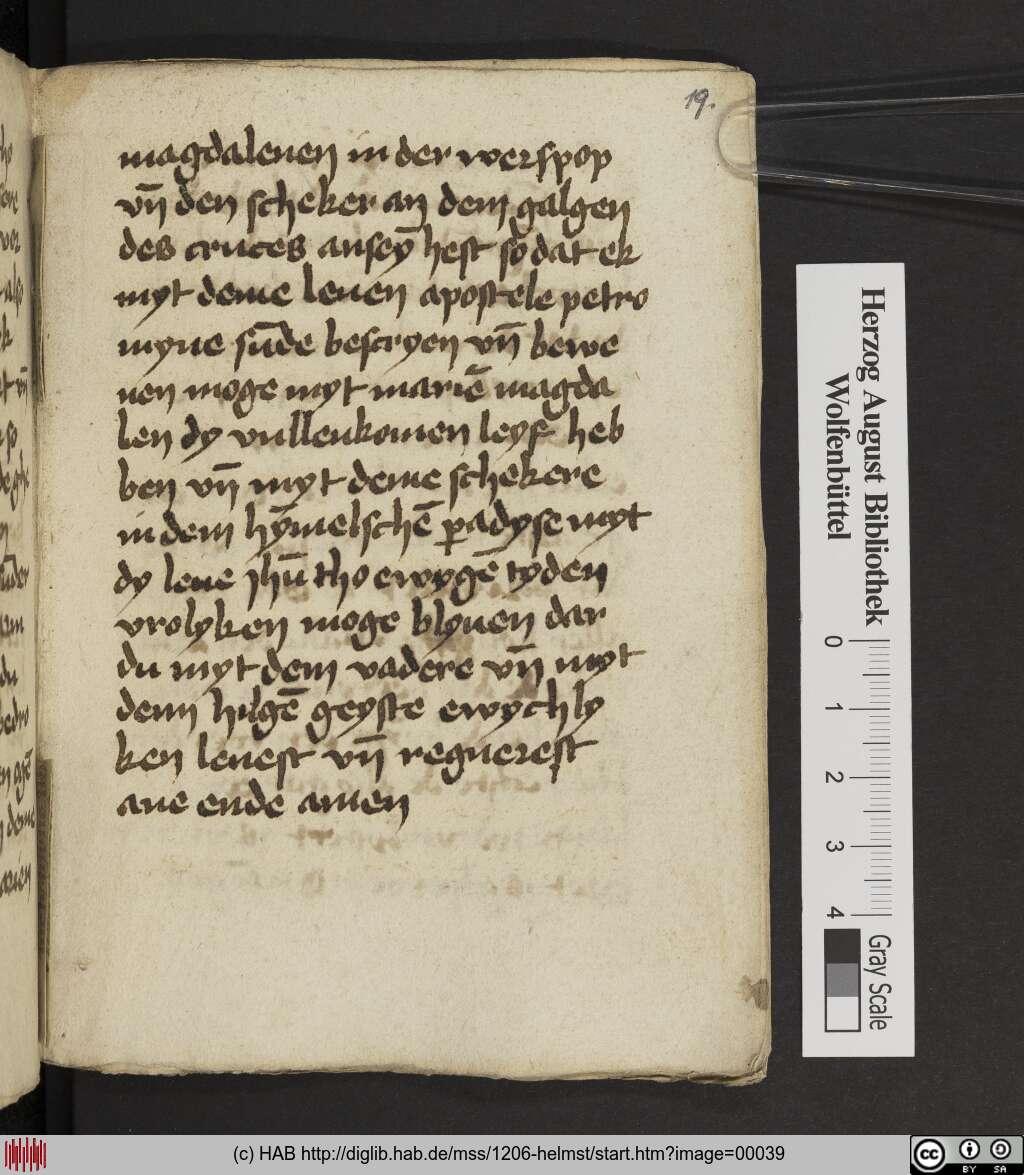 19.
magdalenen in der werspop
vn̄ den scheker an dem galgen
des cruces anseȳ hest so dat ek
myt deme leuen apostele petro
myne sūde bescryen vn̄ bewe
nen moge myt mariē magda
len dy vullenkomen leyf heb
ben vn̄ myt deme schekere
in dem hȳmelschē ꝑadyse myt
dy leue jhū tho ewygē tyden
vrolyken moge blyuen dar
du myt dem vadere vn̄ myt
dem hilgē geyste ewychly
ken leuest vn̄ regnerest
ane ende amen
Herzog August Bibliothek
Wolfenbüttel
0 1 2 3 4
Gray Scale
(c) HAB http://diglib.hab.de/mss/1206-helmst/start.htm?image=00039
cc BY SA